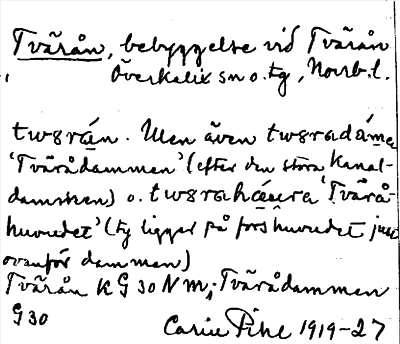 Tvärån, bebyggelse vid Tvärån
Överkalix sn o. tg, Norrb. l.
twərån. Men även twəradáma
'Tvärådammen' (efter den stora kanal-
dammen) o. twərahåura 'Tvärå-
huvudet' (ty ligger på forshuvudet just
ovanför dammen)
Tvärån K G 30 N m; Tvärådammen
G 30 Carin Pihl 1919-27